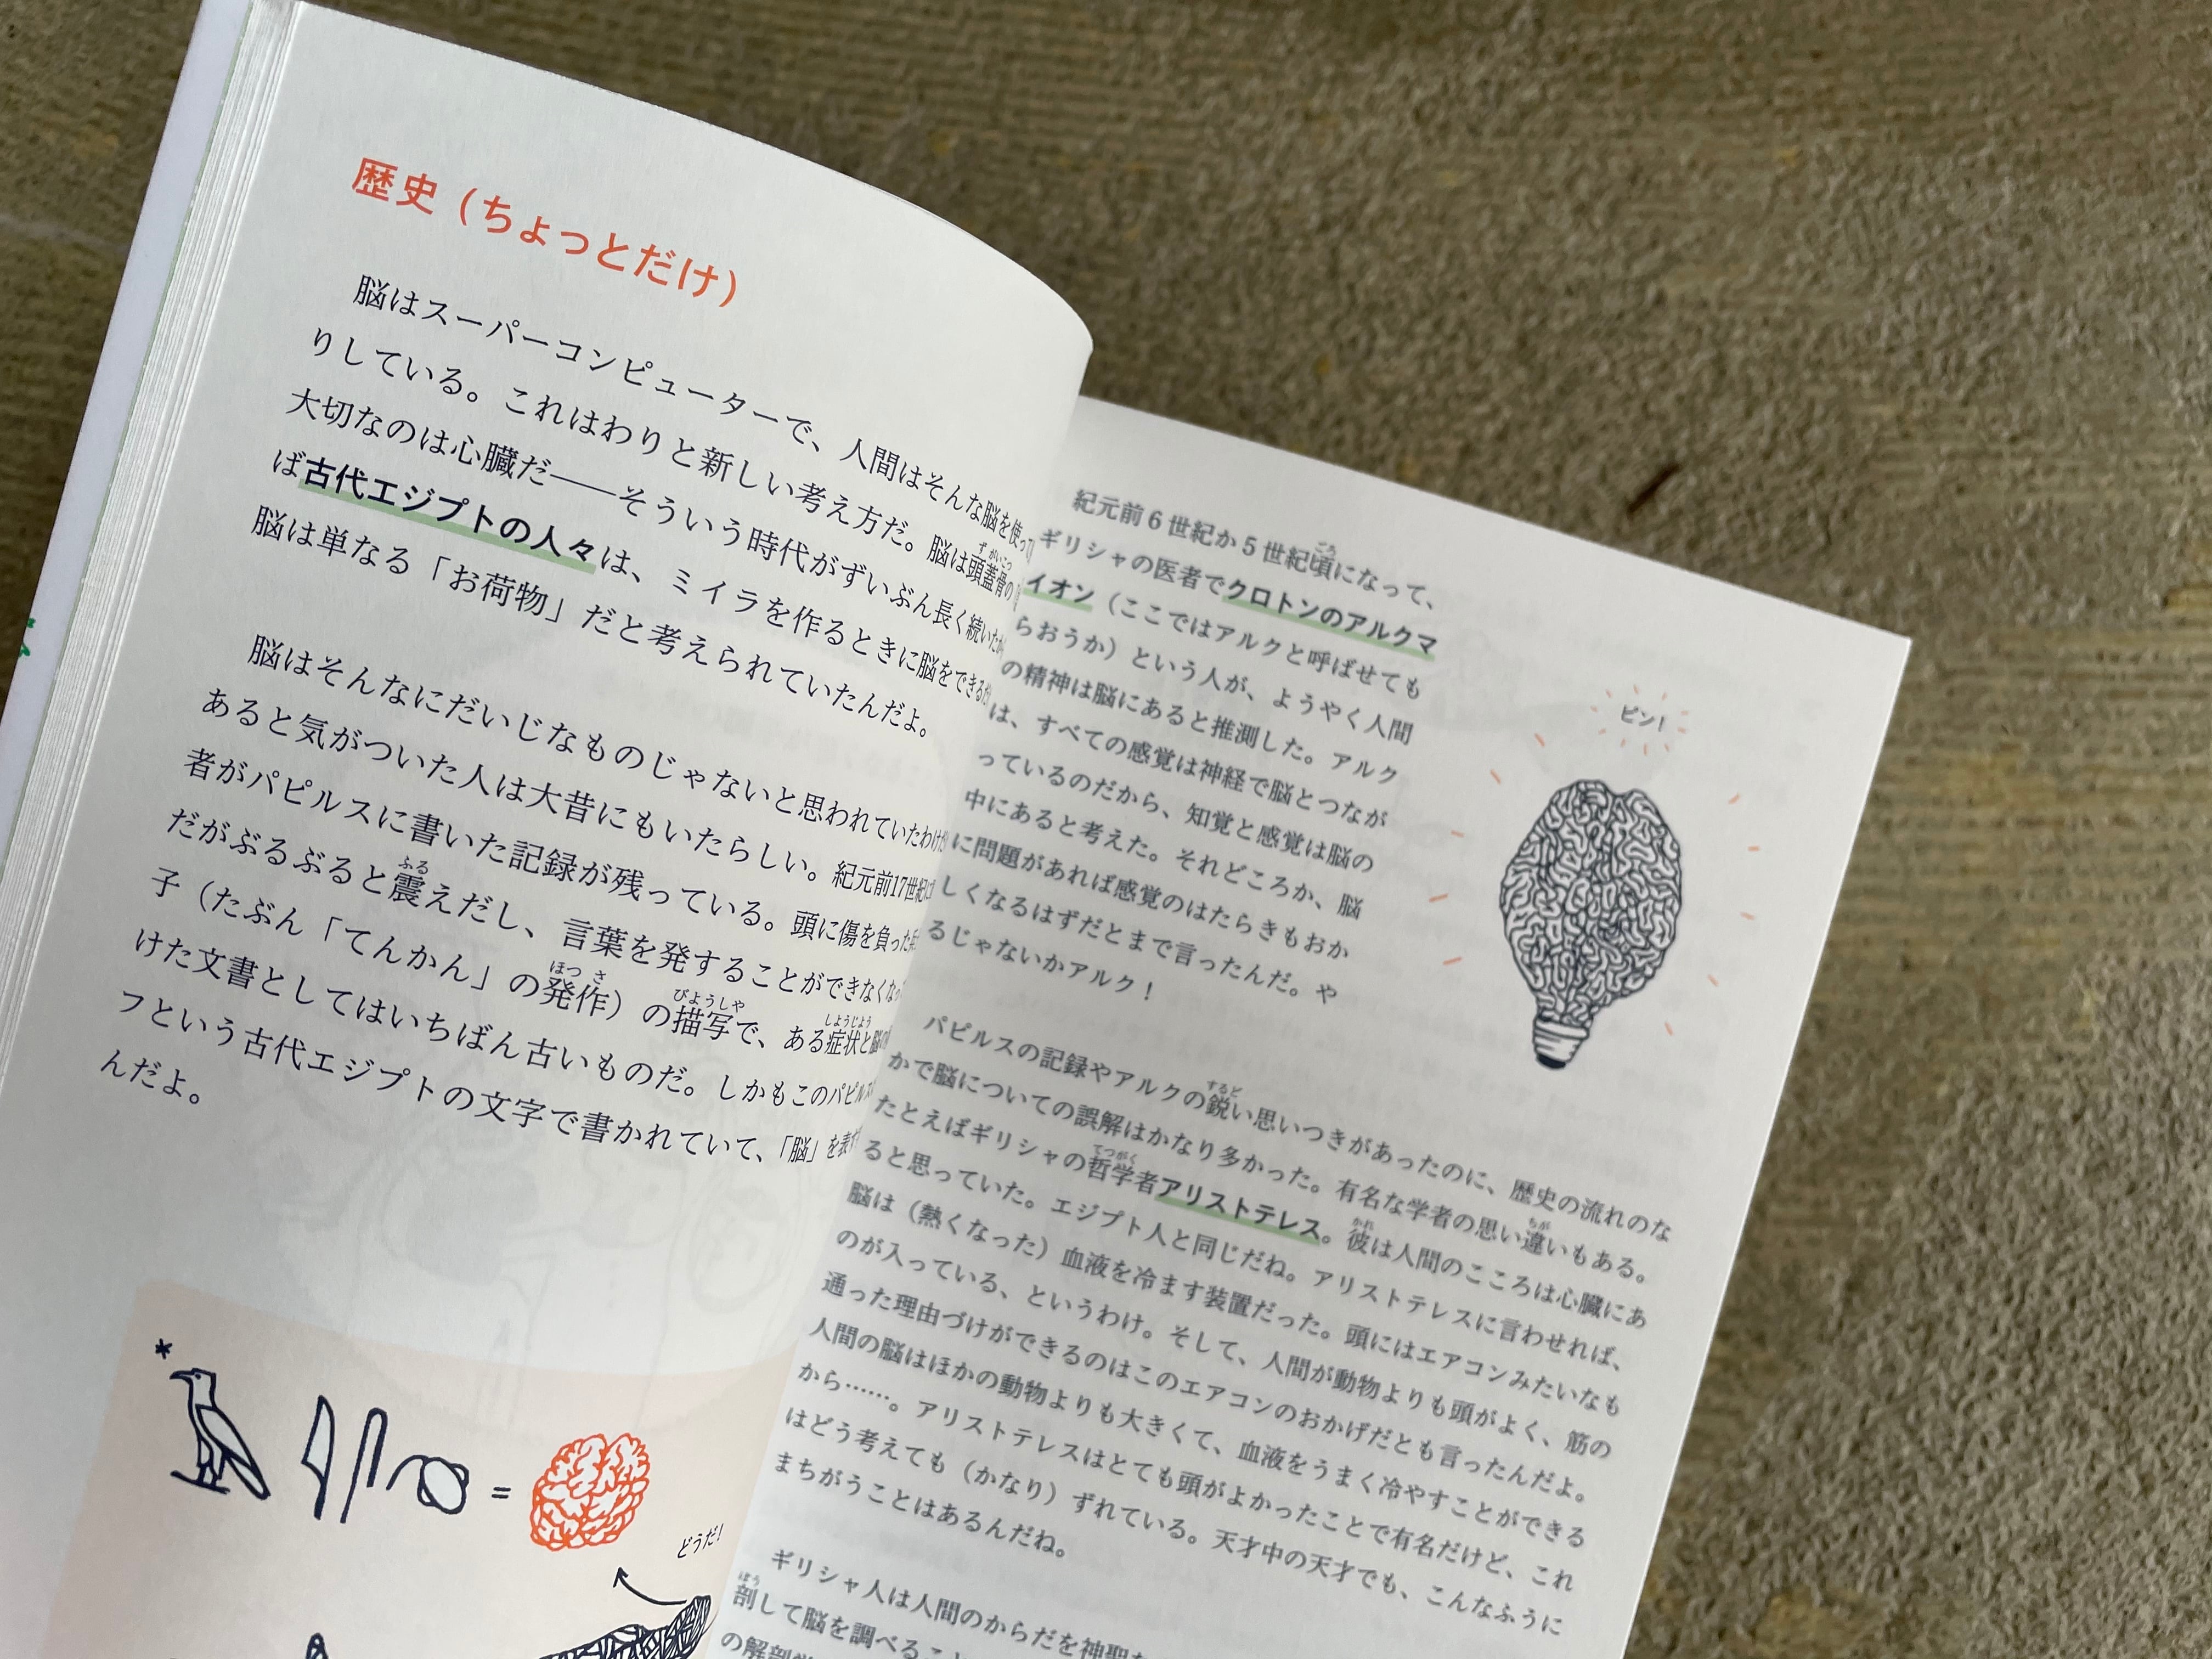 歴史（ちょっとだけ）
脳はスーパーコンピューターで、人間はそんな脳を使っ
りしている。これはわりと新しい考え方だ。脳は頭蓋骨の
大切なのは心臓だ――そういう時代がずいぶん長く続いた
ば古代エジプトの人々は、ミイラを作るときに脳をできる
脳は単なる「お荷物」だと考えられていたんだよ。
脳はそんなにだいじなものじゃないと思われていたわけ
あると気がついた人は大昔にもいたらしい。紀元前17世紀に
者がパピルスに書いた記録が残っている。頭に傷を負った
だがぶるぶると震えだし、言葉を発することができなくな
子（たぶん「てんかん」の発作）の描写で、ある症状と脳
けた文書としてはいちばん古いものだ。しかもこのパピルス
フという古代エジプトの文字で書かれていて、「脳」を表
んだよ。
*
=
どうだ!
紀元前6世紀か5世紀頃になって、
ギリシャの医者でクロトンのアルクマ
イオン（ここではアルクと呼ばせても
らおうか）という人が、ようやく人間
の精神は脳にあると推測した。アルク
は、すべての感覚は神経で脳とつなが
っているのだから、知覚と感覚は脳の
中にあると考えた。それどころか、脳
に問題があれば感覚のはたらきもおか
しくなるはずだとまで言ったんだ。や
るじゃないかアルク！
ピン!
パピルスの記録やアルクの鋭い思いつきがあったのに、歴史の流れのな
かで脳についての誤解はかなり多かった。有名な学者の思い違いもある。
たとえばギリシャの哲学者アリストテレス。彼は人間のこころは心臓にあ
ると思っていた。エジプト人と同じだね。アリストテレスに言わせれば、
脳は（熱くなった）血液を冷ます装置だった。頭にはエアコンみたいなも
のが入っている、というわけ。そして、人間が動物よりも頭がよく、筋の
通った理由づけができるのはこのエアコンのおかげだとも言ったんだよ。
人間の脳はほかの動物よりも大きくて、血液をうまく冷やすことができる
から……。アリストテレスはとても頭がよかったことで有名だけど、これ
はどう考えても（かなり）ずれている。天才中の天才でも、こんなふうに
まちがうことはあるんだね。
ギリシャ人は人間のからだを神聖
剖して脳を調べること
の解剖